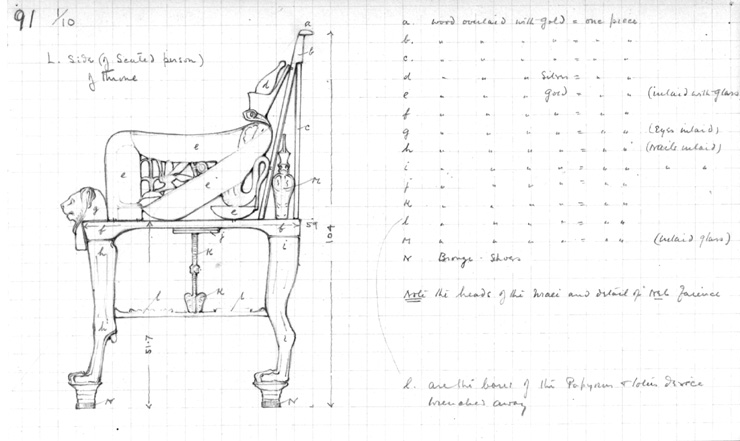 91 1/10
L. Side (of Seated person)
of throne
a
b
c
d
e
e
e
e
g
f
f
59
M
104
h
i
j
K
K
l
l
h
l
51.7
N
N
a. wood overlaid with gold = one piece
b. " " " " = " "
c. " " " " = " "
d " " " Silver = " "
e " " " Gold = " " (inlaid with glass
f " " " " = " "
g " " " " = " " (Eyes inlaid)
h " " " " = " " (Nails inlaid)
i " " " " = " " " "
j " " " " = " "
K " " " " = " "
l " " " " = " "
M " " " " = " " (inlaid glass)
N Bronze - Shoes
Note the heads of the Uraei and detail of Neb faience
l. are the bases of the Papyrus & lotus device
wrenched away